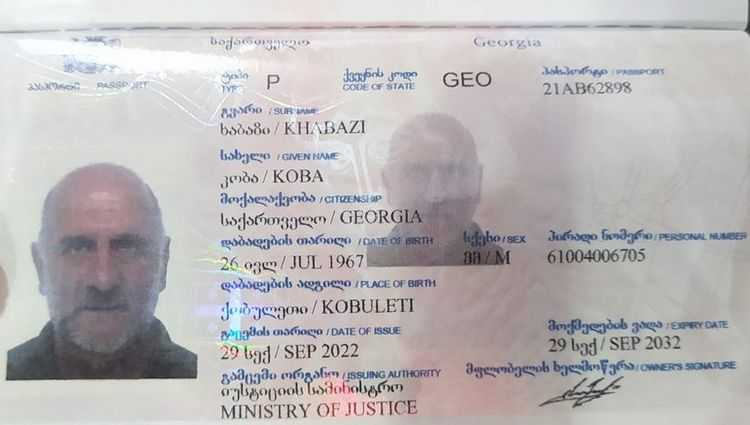 საქართველო Georgia
პასპორტი PASSPORT
ტიპი TYPE P ქვეყნის კოდი CODE OF STATE GEO პასპორტი / PASSPORT 21AB62898
გვარი / SURNAME
ხაბაზი / KHABAZI
სახელი / GIVEN NAME
კობა / KOBA
მოქალაქეობა / CITIZENSHIP
საქართველო / GEORGIA
დაბადების თარიღი / DATE OF BIRTH სქესი / SEX პირადი ნომერი / PERSONAL NUMBER
26 ივლ / JUL 1967 მმ / M 61004006705
დაბადების ადგილი / PLACE OF BIRTH
ქობულეთი / KOBULETI
გაცემის თარიღი / DATE OF ISSUE მოქმედების ვადა / EXPIRY DATE
29 სექ / SEP 2022 29 სექ / SEP 2032
გამცემი ორგანო / ISSUING AUTHORITY მფლობელის ხელმოწერა / OWNER'S SIGNATURE
იუსტიციის სამინისტრო
MINISTRY OF JUSTICE